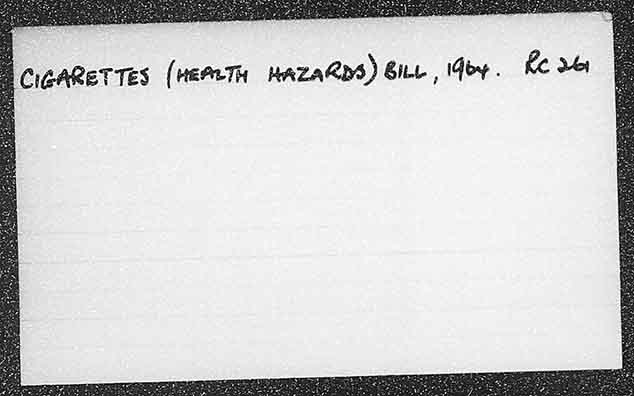 CIGARETTES (HEALTH HAZARDS) BILL, 1964. RC 261